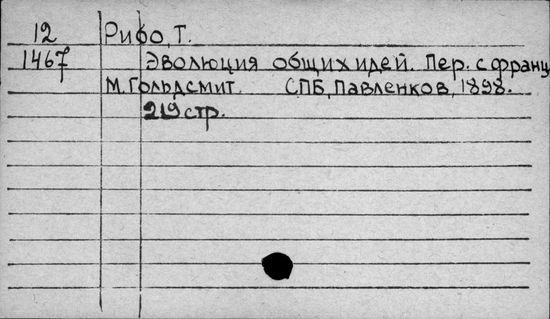 12 Рибо, Т.
1467 Эволюция общих идей. Пер. с франц.
М. Гольдсмит. СПБ, Павленков, 1898.
219 стр.